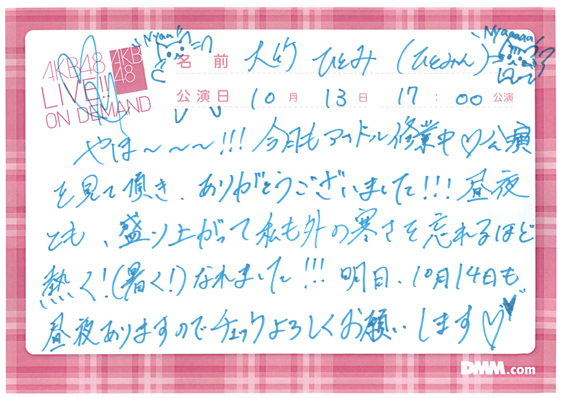 Nyaa
Nyaaaaa
AKB48
LIVE!!
ON DEMAND
AKB
48
名前 大竹 ひとみ (ひとみん)
公演日 10月 13日 17:00公演
やほ〜〜〜!!! 今日もアイドル修業中♡公演
を見て頂き、ありがとうございました!!! 昼夜
とも、盛り上がって私も外の寒さを忘れるほど
熱く!(暑く!)なれました!!! 明日、10月14日も
昼夜ありますのでチェックよろしくお願いします♡♥
DMM.com